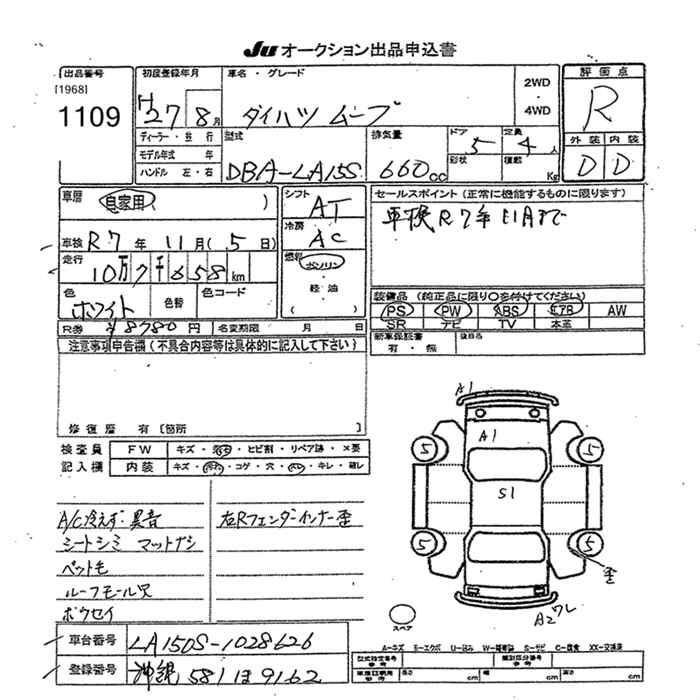 Ju オークション出品申込書
出品番号
[1968]
1109
初度登録年月
H27 8月
車名・グレード
ダイハツ ムーブ
2WD
・
4WD
評価点
R
外装 内装
D D
ディーラー・並行
モデル年式 年
ハンドル 左・右
型式
DBA-LA15S
排気量
660cc
ドア
5
形状
定員
4人
積載
Kg
車歴
自家用
)
車検 R7年11月(5日)
走行
10万7千658km
色
ホワイト
色替
色コード
R券 ¥8780円 名変期限 月 日
シフト
AT
冷房
AC
燃料
ガソリン
・
軽油
( )
セールスポイント(正常に機能するものに限ります)
車検R7年11月まで
装備品(純正品に限り○を付けてください)
PS PW ABS エアB AW
SR ナビ TV 本革
新車保証書
有・無
後日品
注意事項申告欄(不具合内容等は具体的に記入して下さい)
修復歴 有[箇所 ]
検査員
記入欄
FW キズ・ ・ヒビ割・リペア跡・×要
内装 キズ・ ・コゲ・穴・ ・キレ・破レ
A/C冷えず・異音
シートシミ マットナシ
ペット毛
ルーフモール欠
ボウセイ
右Rフェンダーインナー歪
A1
A1
S1
5
5
5
5
歪
A2ワレ
スペア
A-キズ E-エクボ U-凹み W-補修跡 S-サビ C-腐食 XX-交換済
車台番号 LA150S-1028626
登録番号 沖縄 581 ほ 9162
型式指定番号
参考
類別区分番号
参考
参考
長さ cm 幅 cm 高さ cm